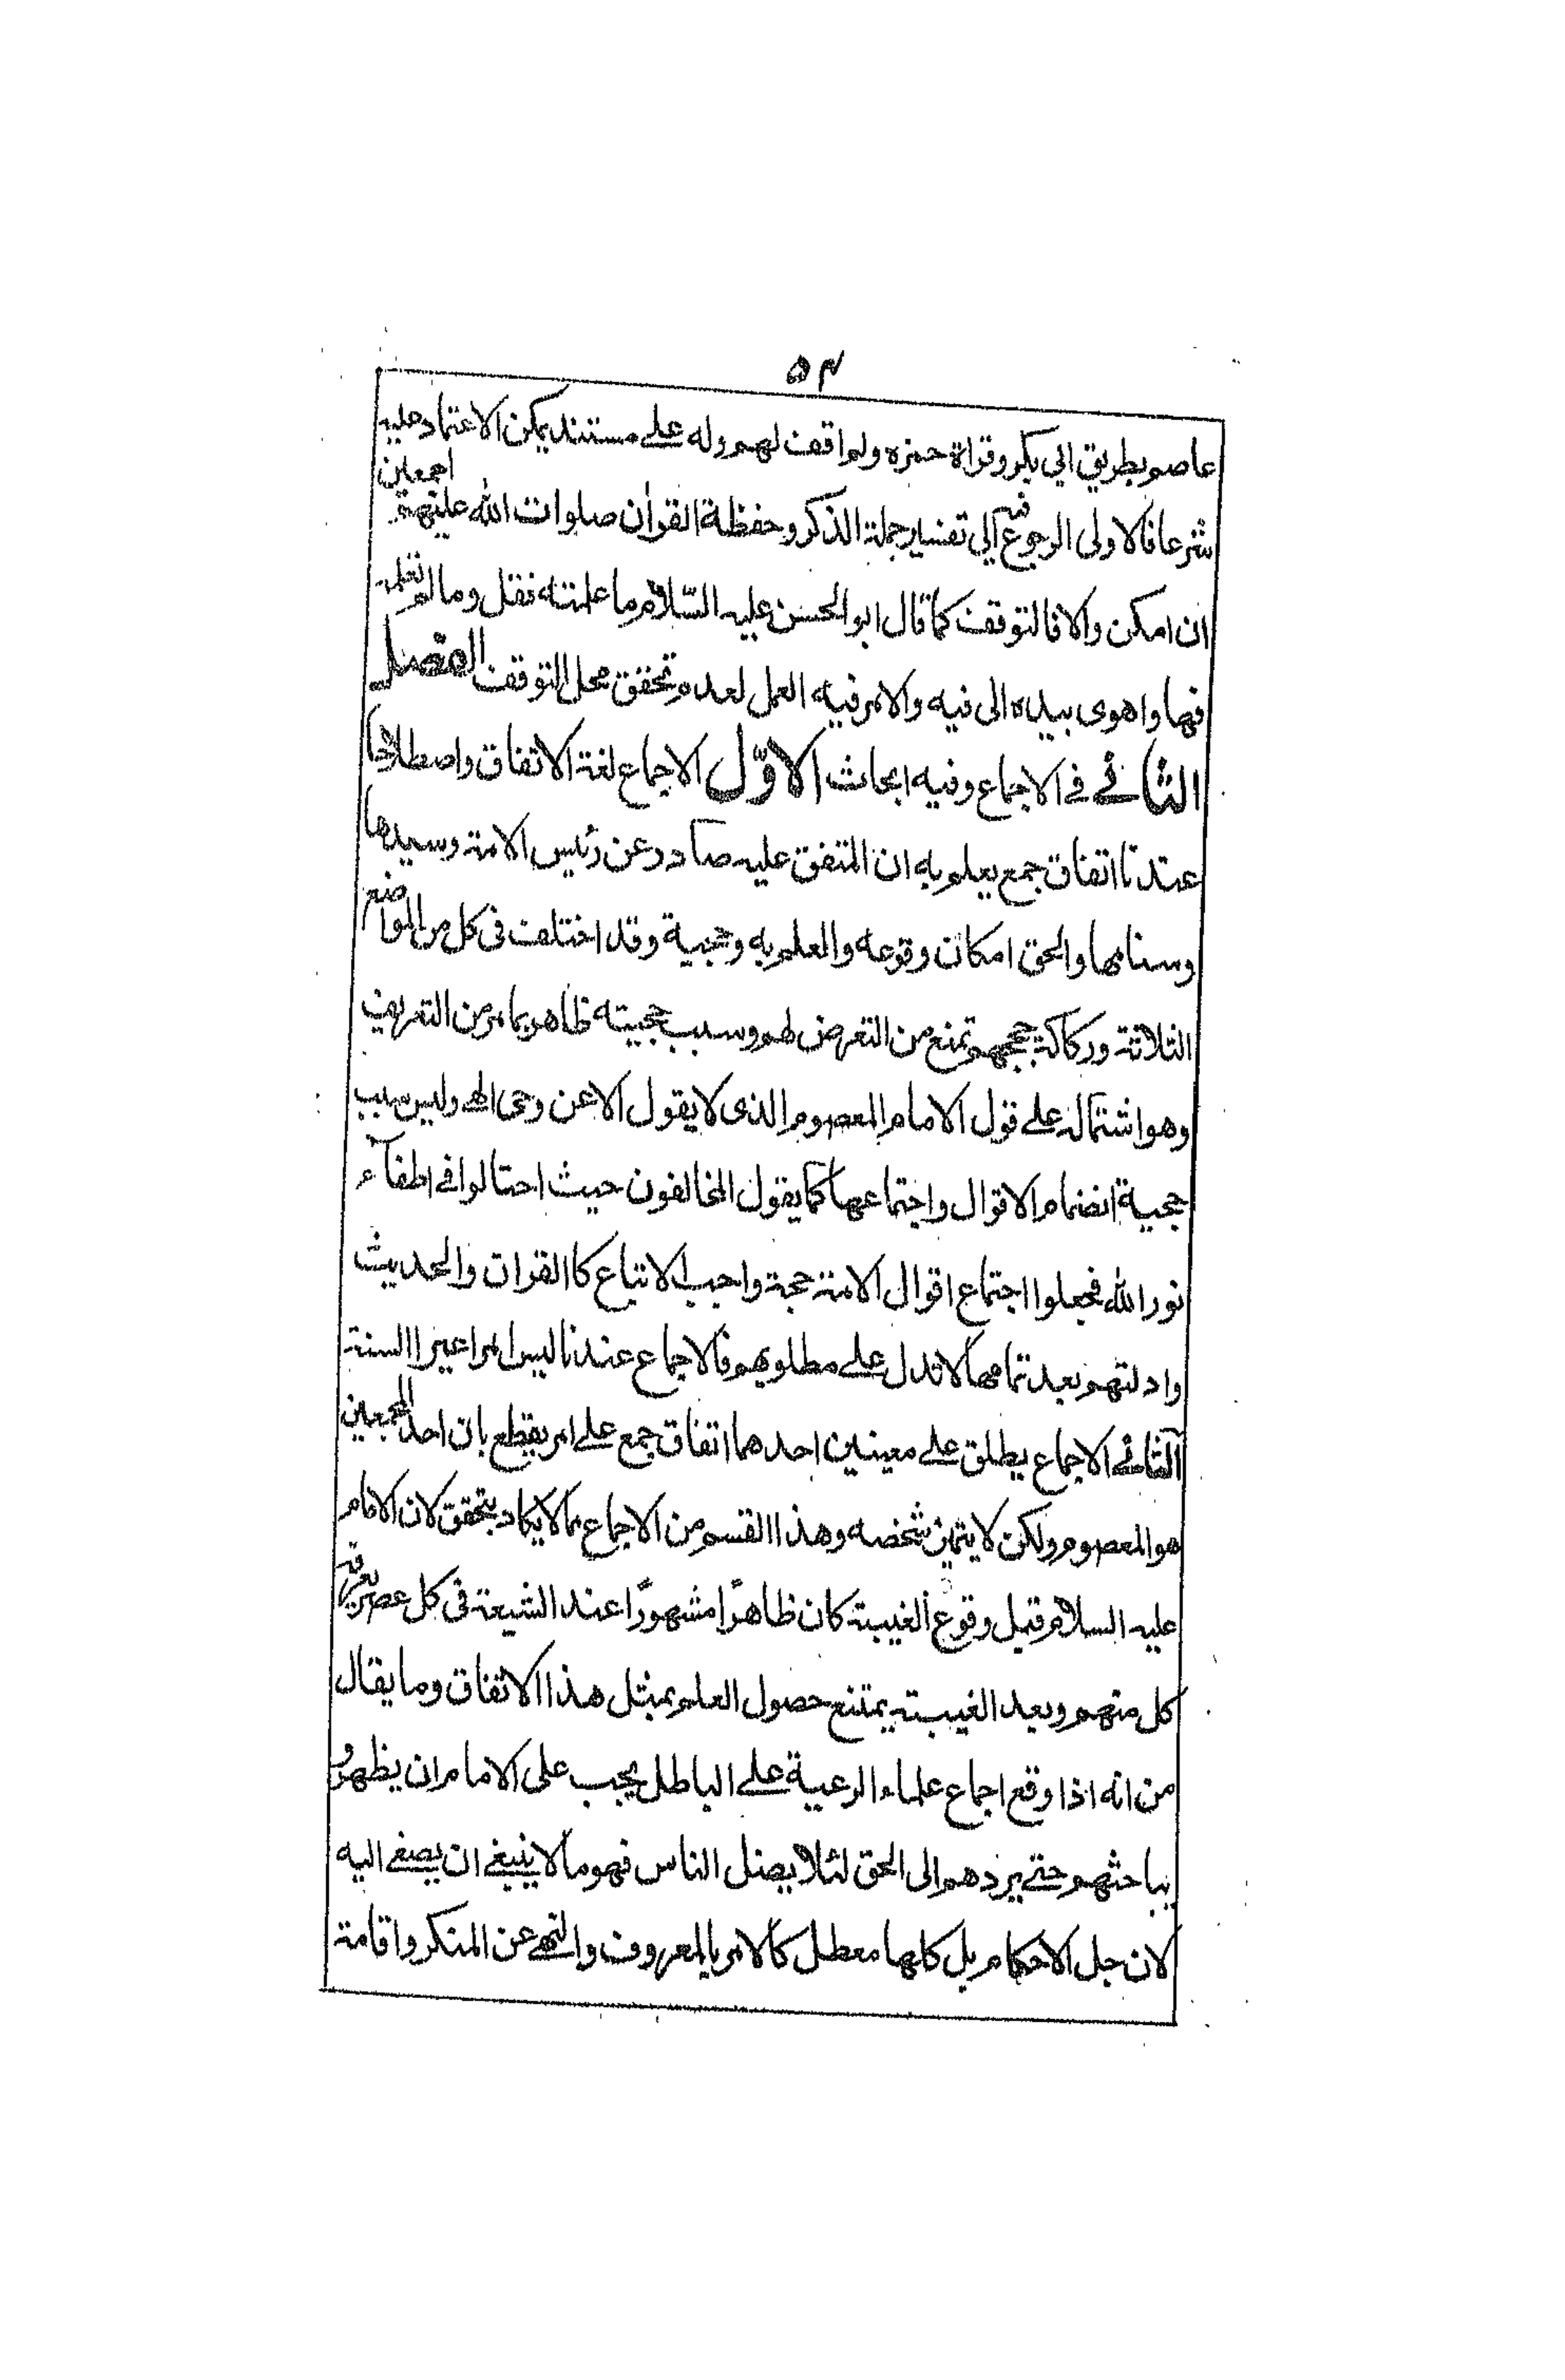 ۵۴
عاصم بطريق ابي بكر وقراة حمزه ولم اقف لهم وله على مستند يمكن الاعتماد عليه
شرعا فالاولى الرجوع فيه الى تفسير حملة الذكر وحفظة القرآن صلوات الله عليهم اجمعين
ان امكن والا فالتوقف كما قال ابو الحسن عليه السّلام ما علمته فقل وما لم تعلمه
فها واهوى بيده الى فيه والامر فيه العمل لعدم تحقق محل التوقف الفصل
الثاني في الاجماع وفيه ابحاث الاوّل الاجماع لغة الاتفاق واصطلاحا
عندنا اتفاق جمع يعلم به ان المتفق عليه صادر عن رئيس الامة وسيدها
وسنامها والحق امكان وقوعه والعلم به وحجية وقد اختلف في كل من المواضع
الثلاثة وركاكة حججهم تمنع من التعرض لهم وسبب حجيته ظاهر بما مر من التعريف
وهو اشتماله على قول الامام المعصوم الذى لا يقول الا عن وحى الهى وليس سبب
حجية انضمام الاقوال واجتماعها كما يقول المخالفون حيث احتالوا في اطفآء
نور الله فجعلوا اجتماع اقوال الامة حجة واجب الاتباع كا القران والحديث
وادلتهم بعد تمامها لا تدل على مطلوبهم فالاجماع عندنا ليس امرا غير االسنة
الثاني الاجماع يطلق على معينين احدهما اتفاق جمع على امر يقطع بان احد المجمعين
هو المعصوم ولكن لا يتميز شخصه وهذا القسم من الاجماع مما لا يكاد يتحقق لان الامام
عليه السلام قبل وقوع الغيبة كان ظاهرًا مشهورًا عند الشيعة في كل عصر يعرفه
كل منهم وبعد الغيبة يمتنع حصول العلم بمثل هذا الاتفاق وما يقال
من انه اذا وقع اجماع علماء الرعية على الباطل يجب على الامام ان يظهر و
يباحثهم حتى يردهم الى الحق لئلا يضل الناس فهو ما لا ينبغي ان يصغى اليه
لان جل الاحكام بل كلها معطل كالامر بالمعروف والنهى عن المنكر واقامة